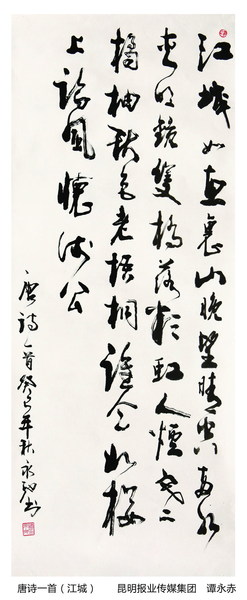 江城如画里山晚望晴空兩水
夹明鏡雙橋落彩虹人煙寒
橘柚秋色老梧桐誰念北樓
上臨風懷謝公
唐詩一首癸巳年秋永赤书
唐诗一首（江城） 昆明报业传媒集团 谭永赤